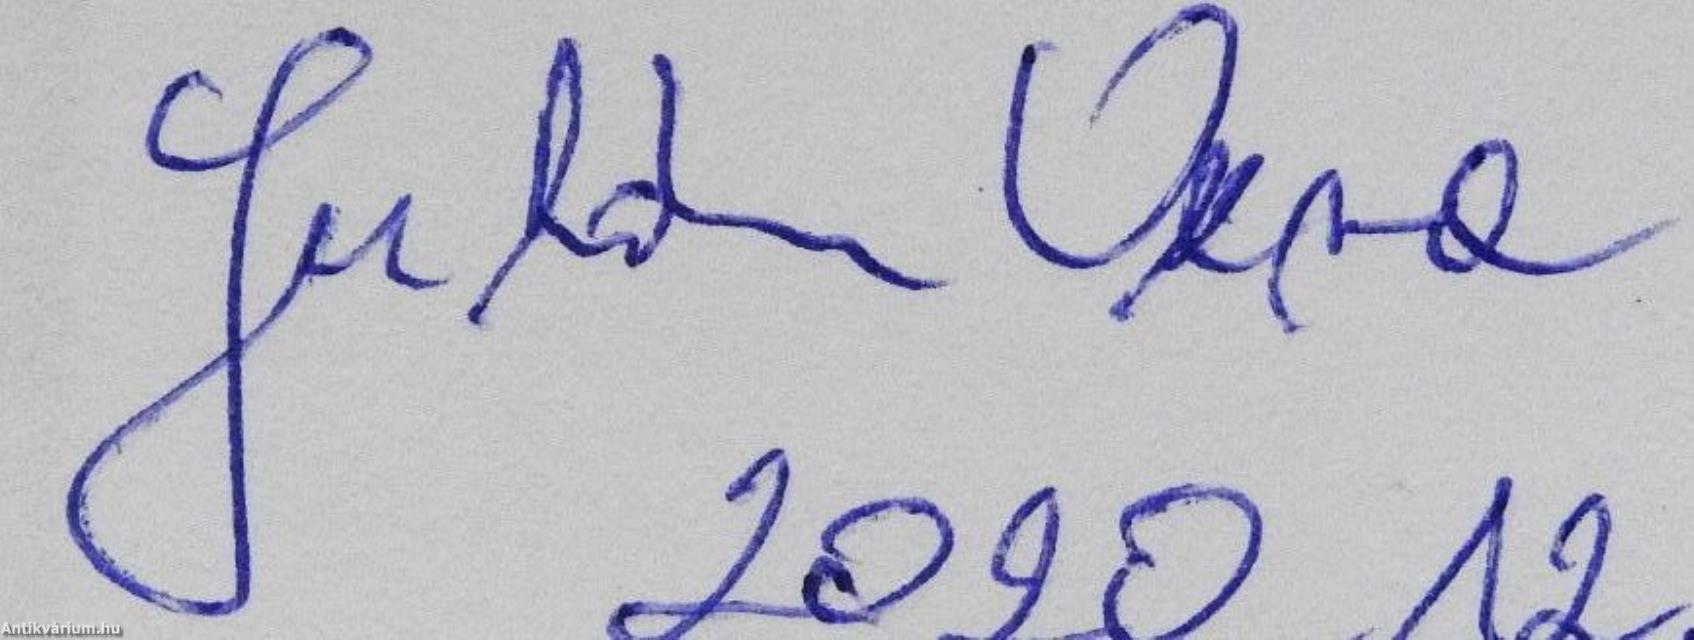 Vera
2020 12.
Antikvárium.hu